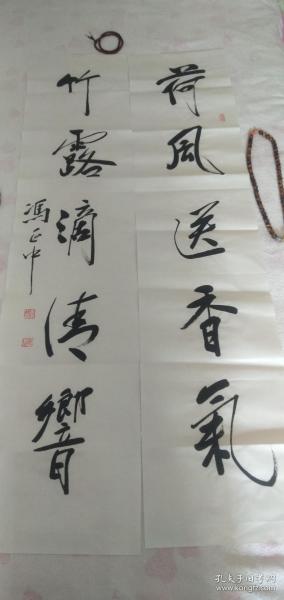 荷風送香氣
竹露滴清響
馮正中
孔夫子旧书网
www.kongfz.com